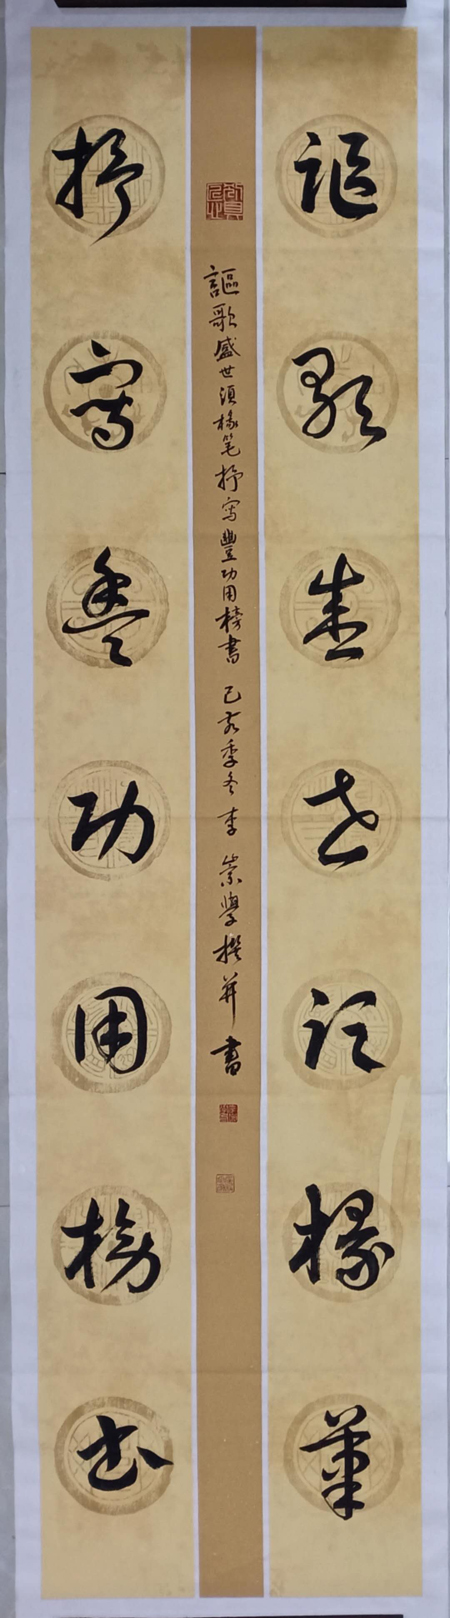 謳歌盛世须椽筆
謳歌盛世須椽笔抒寫豐功用榜書 己亥季冬李崇學撰并書
抒寫豐功用榜书